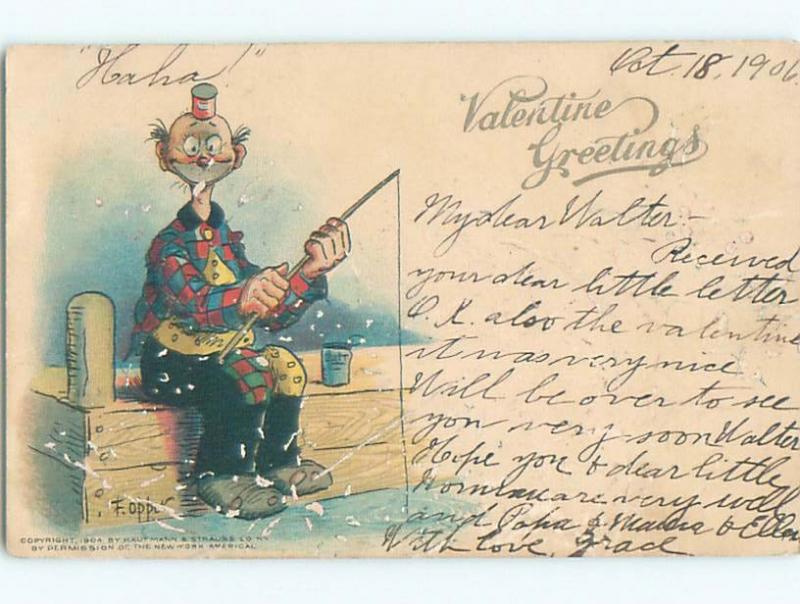 "Haha!"
Oct. 18, 1906.
Valentine
Greetings
My dear Walter -
Received
your dear little letter
O.K. also the valentine
it was very nice
Will be over to see
you very soon Walter
Hope you & dear little
Norman are very well
and Papa & Mama & Ellen
With love, Grace
BAIT
F. Opper
COPYRIGHT, 1904, BY KAUFMANN & STRAUSS CO. N.Y.
BY PERMISSION OF THE NEW YORK AMERICAN